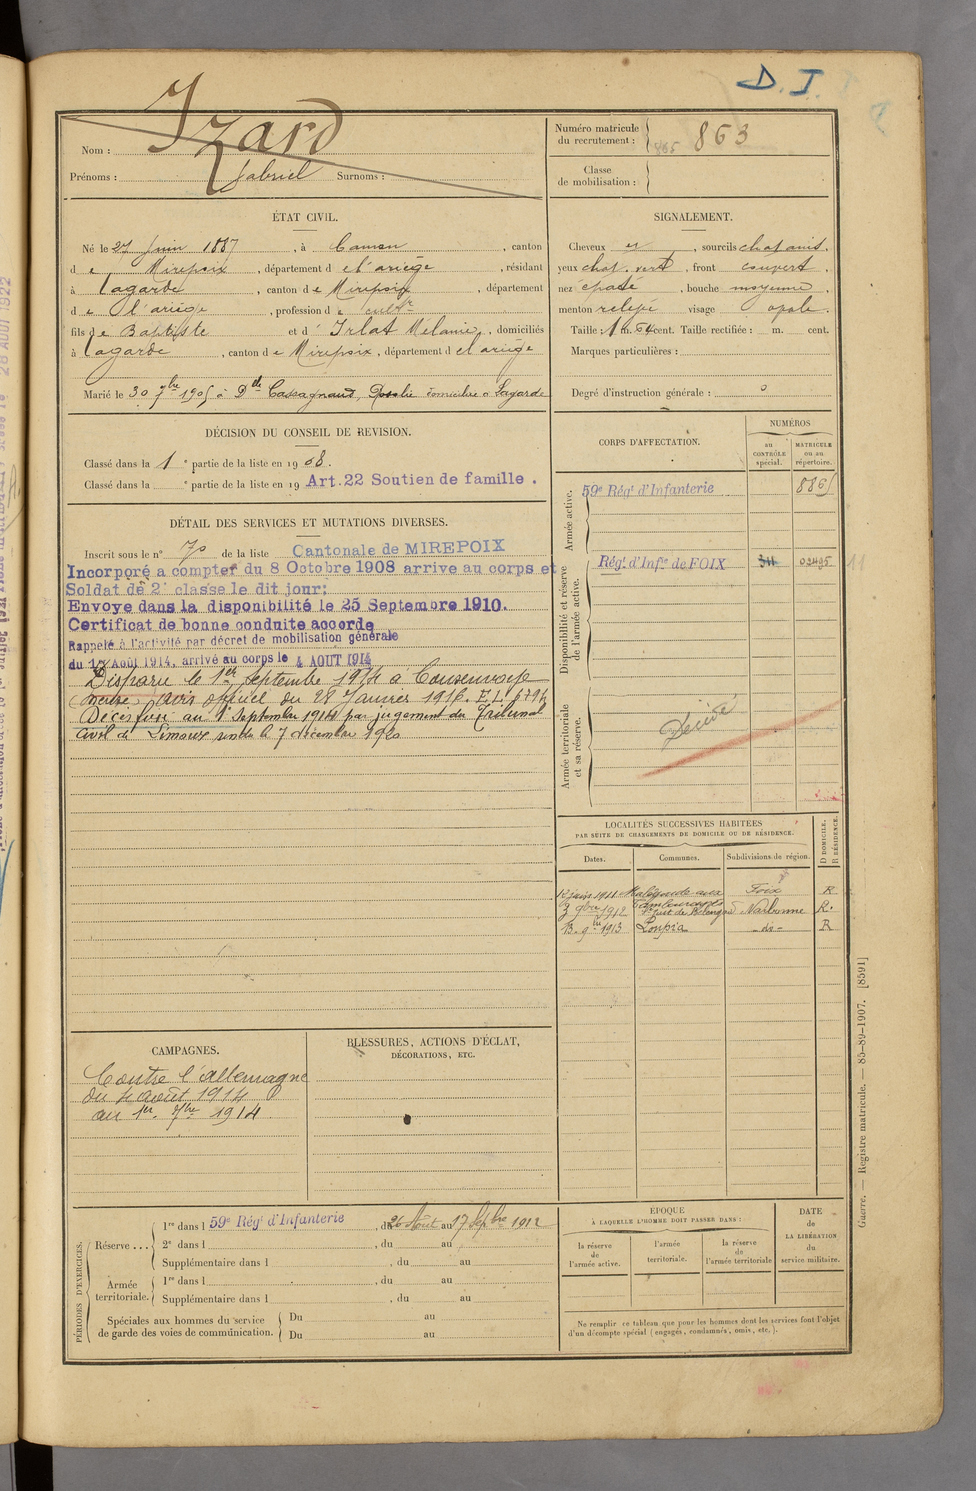 D. I.
Nom : Izard
Prénoms : Gabriel Surnoms :
Numéro matricule du recrutement : 865 863
Classe de mobilisation :
ÉTAT CIVIL.
Né le 27 Juin 1887, à Camon, canton
de Mirepoix, département de l'ariège, résidant
à Lagarde, canton de Mirepoix, département
de l'ariège, profession de cultr
fils de Baptiste et d' Irlat Mélanie, domiciliés
à Lagarde, canton de Mirepoix, département de l'ariège
Marié le 30 7bre 1905 à Dlle Cassagnaud, Rosalie domiciliée à Lagarde
SIGNALEMENT.
Cheveux et, sourcils chatains.
yeux chat. vert, front couvert,
nez épaté, bouche moyenne,
menton relevé visage ovale.
Taille : 1 m. 64 cent. Taille rectifiée : m. cent.
Marques particulières :
Degré d'instruction générale :
DÉCISION DU CONSEIL DE REVISION.
Classé dans la 1e partie de la liste en 1908.
Classé dans la e partie de la liste en 19 Art.22 Soutien de famille.
DÉTAIL DES SERVICES ET MUTATIONS DIVERSES.
Inscrit sous le n° 70 de la liste Cantonale de MIREPOIX
Incorporé a compter du 8 Octobre 1908 arrive au corps et
Soldat de 2e classe le dit jour;
Envoye dans la disponibilité le 25 Septembre 1910.
Certificat de bonne conduite accorde
Rappelé à l'activité par décret de mobilisation générale
du 1er Août 1914, arrivé au corps le 4 AOUT 1914
Disparu le 1er Septembre 1914 à Consenvoye
(Meuse) Avis officiel du 28 Janvier 1916. E.L. 6794
Décès fixé au 1er Septembre 1914 par jugement du Tribunal
Civil de Limoux rendu le 7 décembre 1920
CORPS D'AFFECTATION.
NUMÉROS
au CONTRÔLE spécial.
MATRICULE ou au répertoire.
Armée active.
59e Régt d'Infanterie 8865
Disponibilité et réserve de l'armée active.
Régt d'Infie de FOIX 311 02485
11
Armée territoriale et sa réserve.
Décédé
LOCALITÉS SUCCESSIVES HABITÉES
PAR SUITE DE CHANGEMENTS DE DOMICILE OU DE RÉSIDENCE.
Dates. Communes. Subdivisions de région. D DOMICILE. R RÉSIDENCE.
12 janv. 1911 Foix R
3 9bre 1912 Narbonne R.
13. 9bre 1913 Loupia -do- R
CAMPAGNES.
Contre l'allemagne
du 4 août 1914
au 1er 7bre 1914
BLESSURES, ACTIONS D'ÉCLAT,
DÉCORATIONS, ETC.
PÉRIODES D'EXERCICES.
Réserve ...
1re dans l 59e Régt d'Infanterie, du 26 Août au 17 Septbre 1912
2e dans l , du au
Supplémentaire dans l , du au
Armée territoriale.
1re dans l , du au
Supplémentaire dans l , du au
Spéciales aux hommes du service de garde des voies de communication.
Du au
Du au
ÉPOQUE
À LAQUELLE L'HOMME DOIT PASSER DANS :
la réserve de l'armée active.
l'armée territoriale.
la réserve de l'armée territoriale
DATE de LA LIBÉRATION du service militaire.
Ne remplir ce tableau que pour les hommes dont les services font l'objet
d'un décompte spécial (engagés, condamnés, omis, etc.).
Guerre. — Registre matricule. — 85-89-1907. [8591]
28 AOUT 1922